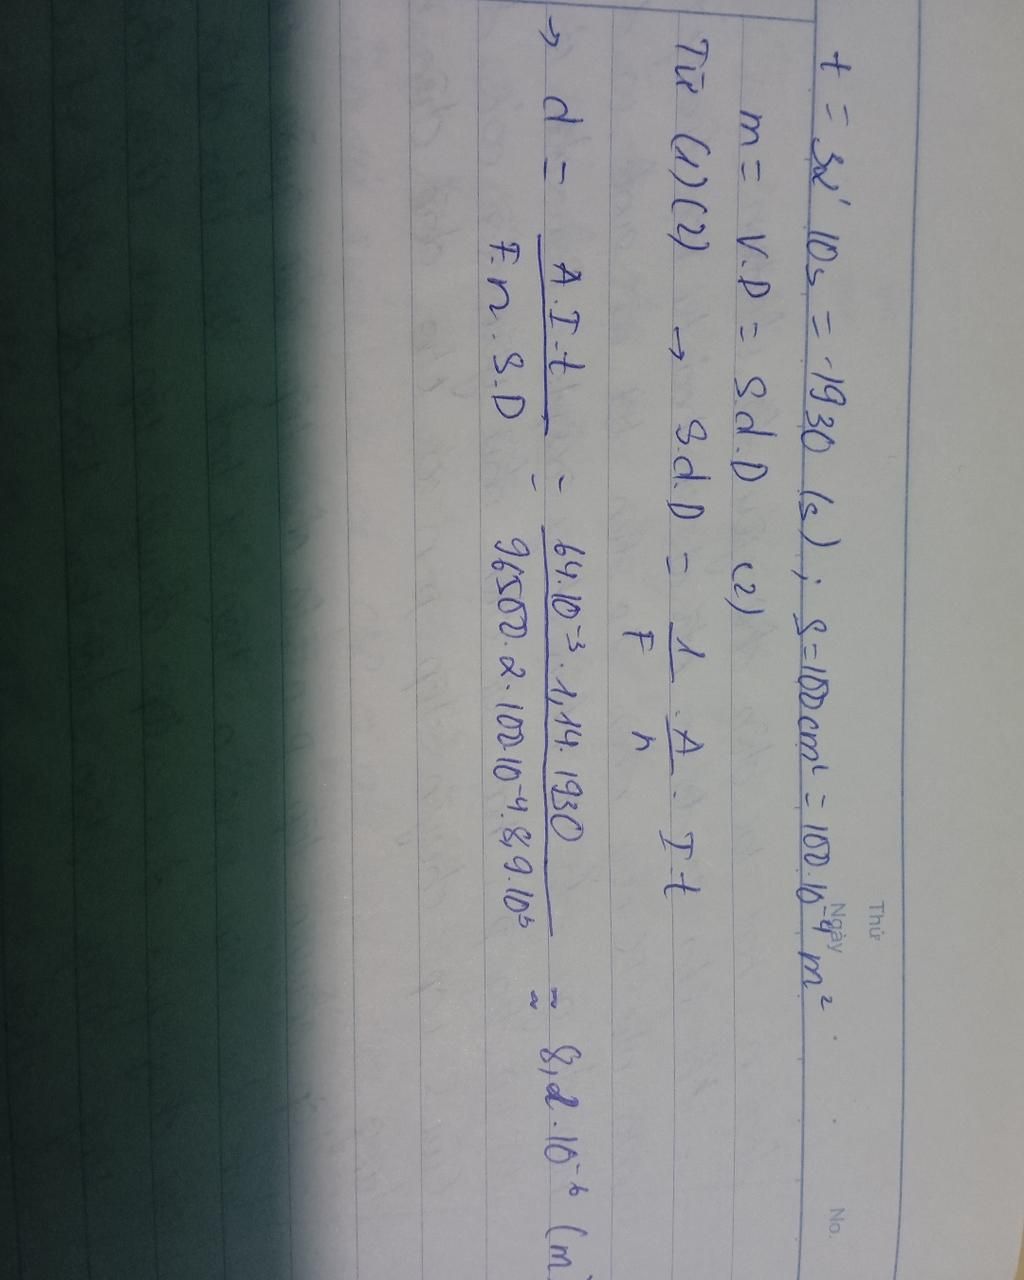 Thứ
Ngày
No.
t = 32' 10s = 1930 (s) ; S = 100cm² = 100.10⁻⁴ m²
m = V.D = S.d.D (2)
Từ (1) (2) → S.d.D = 1/F . A/n . I t
→ d = A.I.t / F.n.S.D = 64.10⁻³.1,14.1930 / 96500.2.100.10⁻⁴.8,9.10³ = 8,2.10⁻⁶ (m)